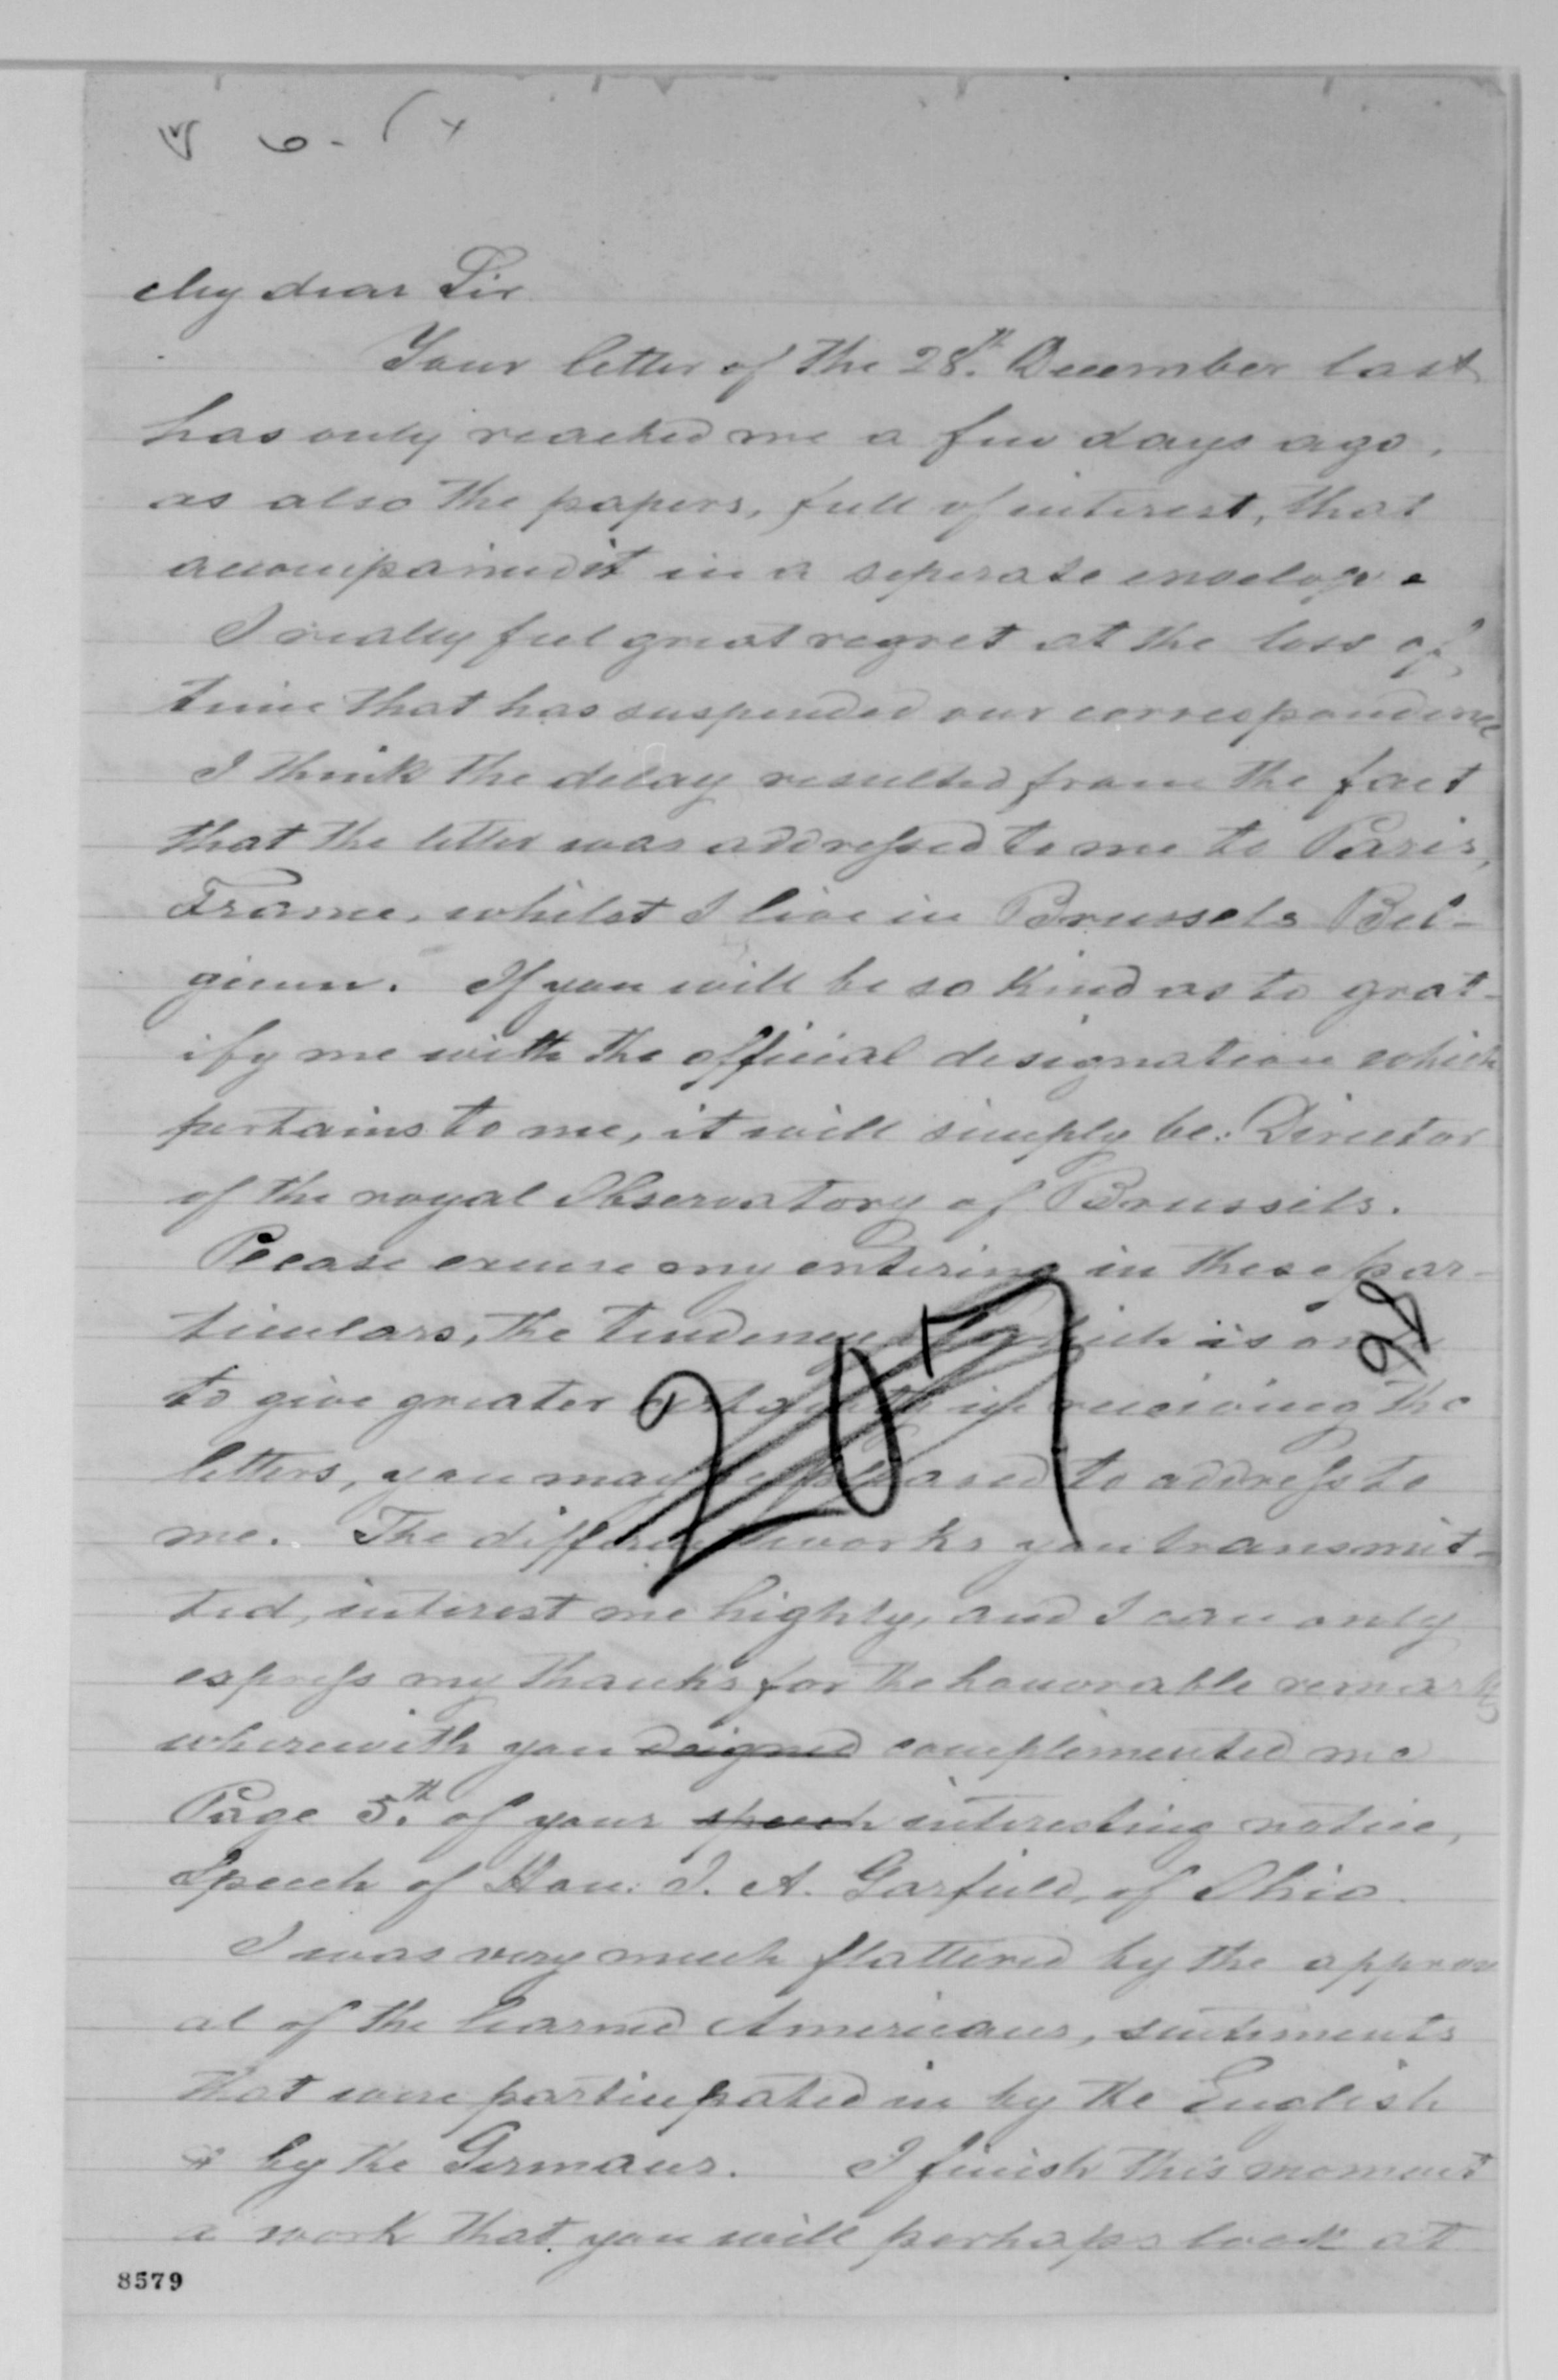 My dear Sir
Your letter of the 28th. December last
has only reached me a few days ago,
as also the papers, full of interest, that
accompanied it in a seperate envelope.
I really feel great regret at the loss of
time that has suspended our correspondence
I think the delay resulted from the fact
that the letter was addressed to me to Paris,
France, whilst I live in Brussels Bel-
gium. If you will be so kind as to grat-
ify me with the official designation which
pertains to me, it will simply be: Director
of the royal Observatory of Brussels.
Please excuse my entering in these par-
ticulars, the tendency of which is only
to give greater in receiving the
letters, you may be pleased to address to
me. The different works you transmit-
ted, interest me highly, and I can only
express my thanks for the honorable remarks
wherewith you deigned complimented me
Page 5th. of your speech interesting notice,
Speech of Hon: J. A. Garfield, of Ohio.
I was very much flattered by the approv
al of the learned Americans, sentiments
that were participated in by the English
& by the Germans. I finish this moment
a work that you will perhaps look at
207
98
8579